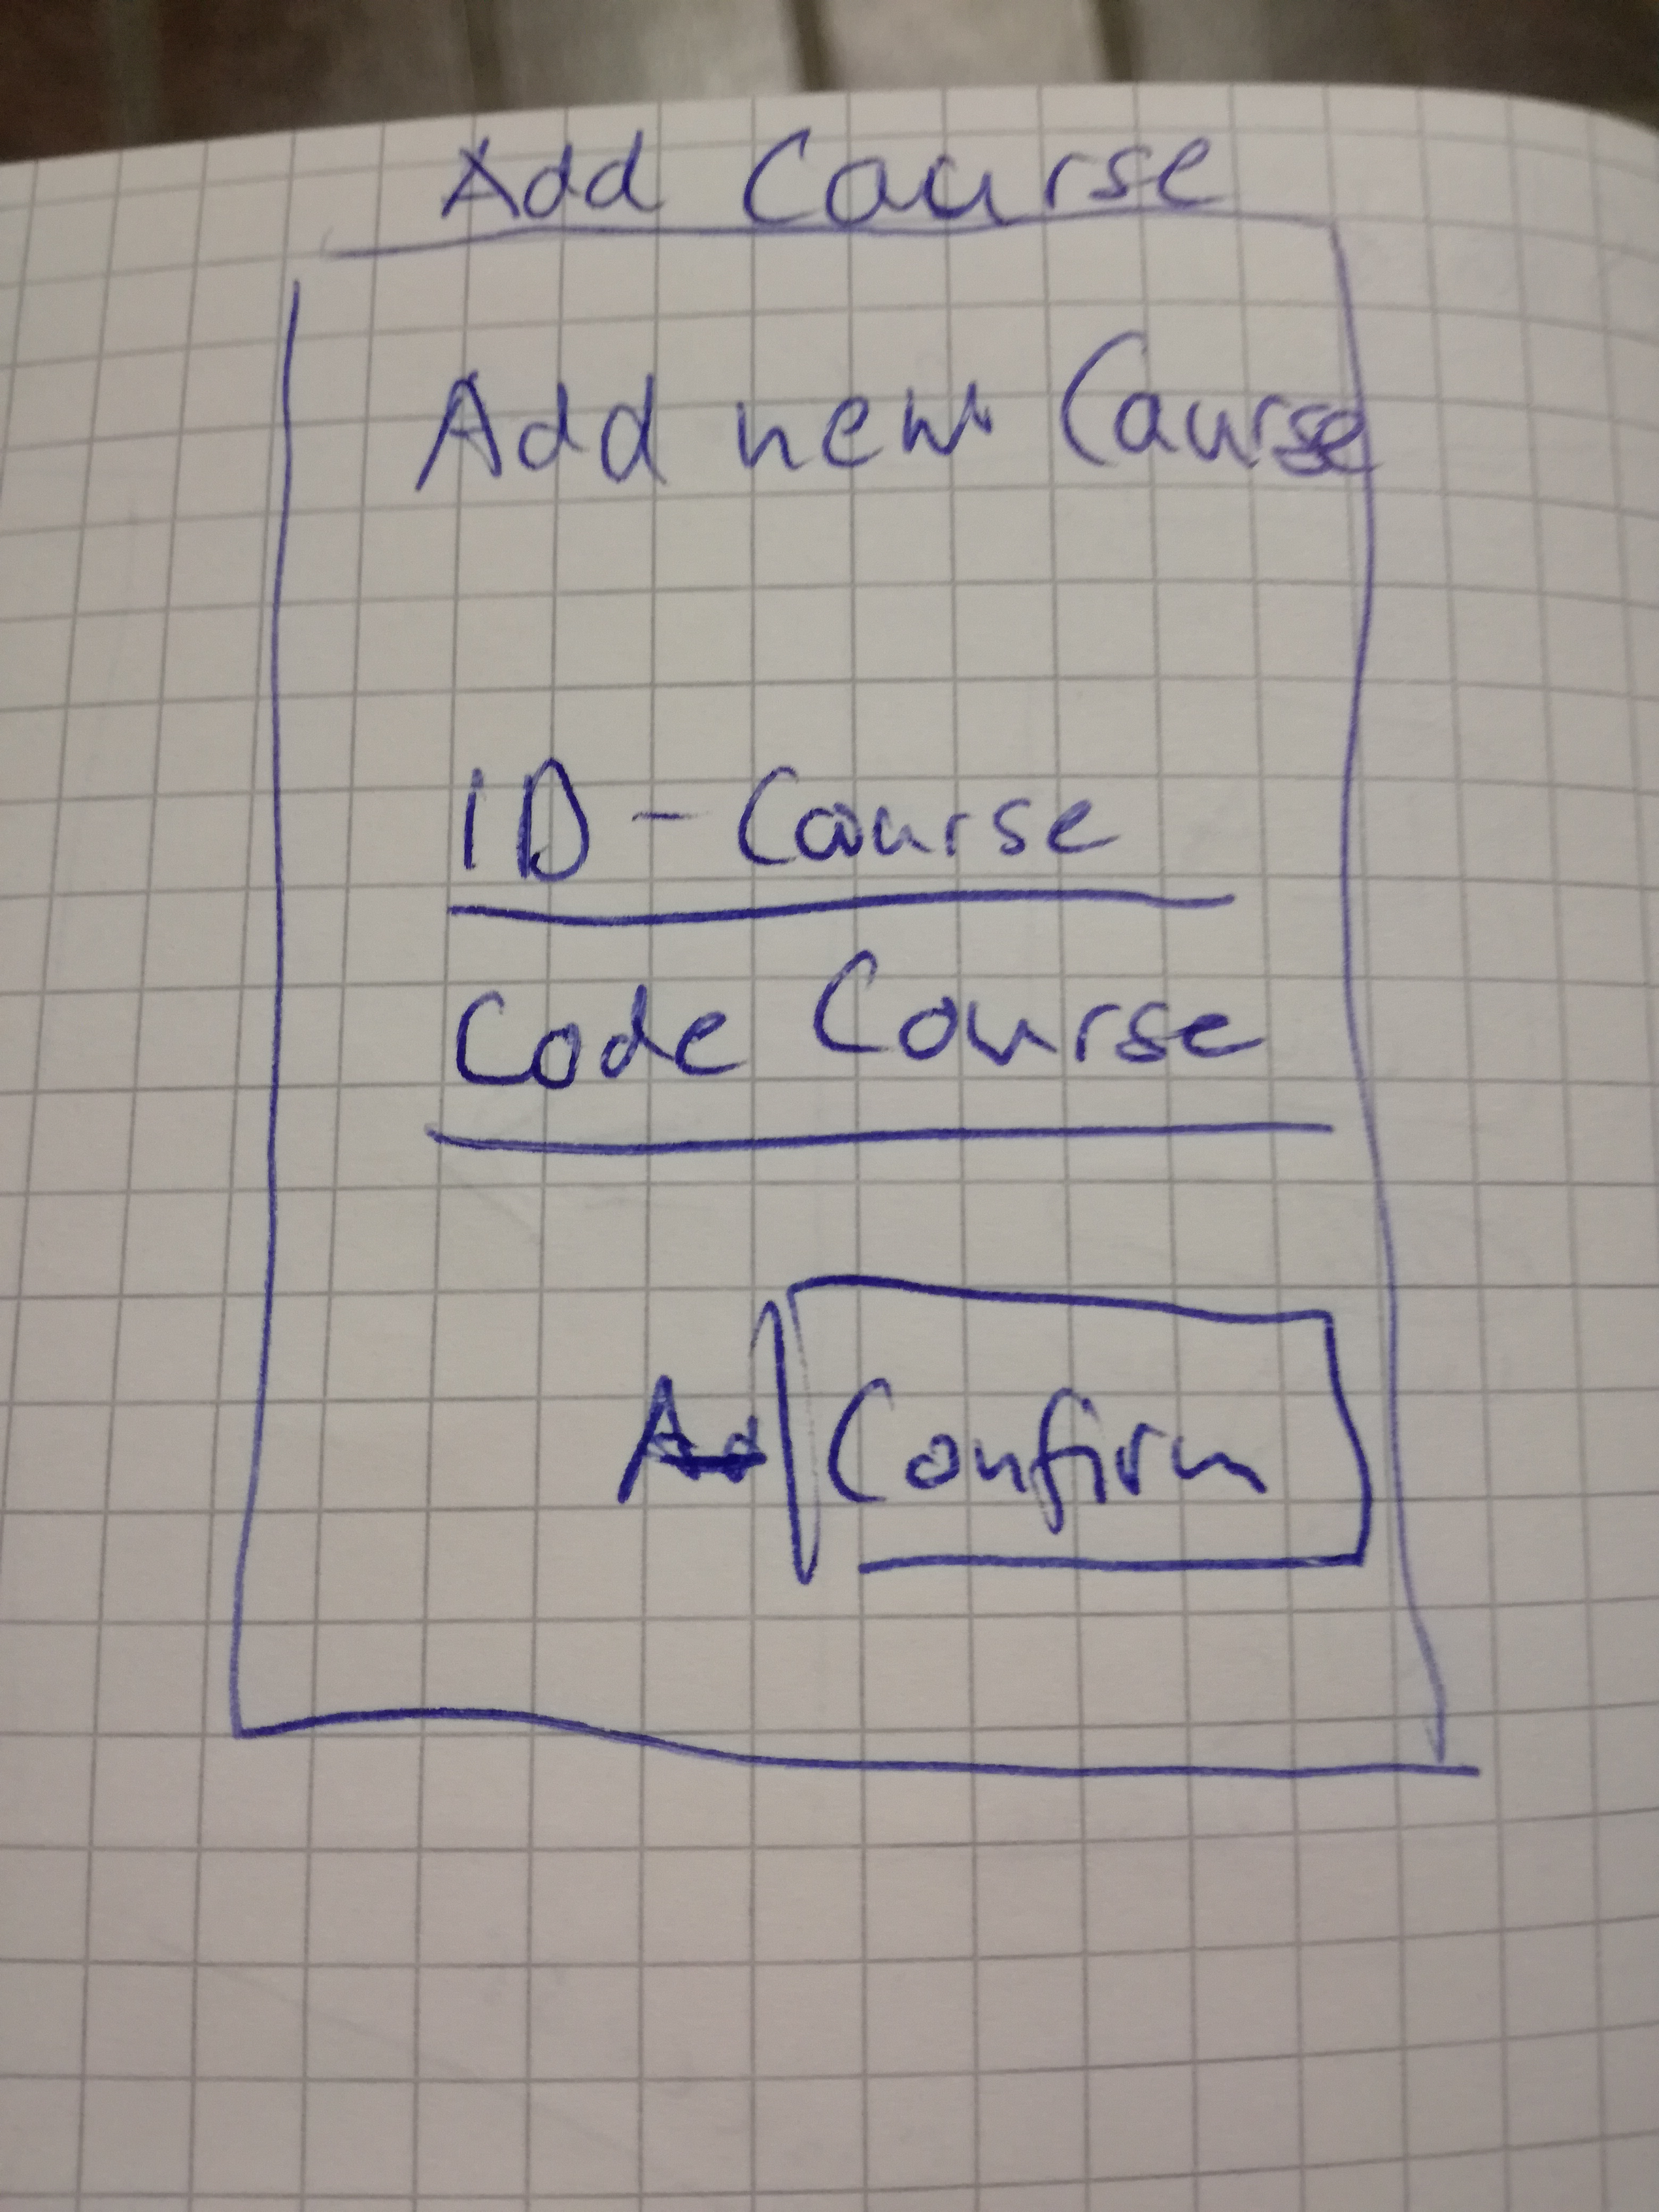 Add Course
Add new Course
ID - Course
Code Course
Confirm